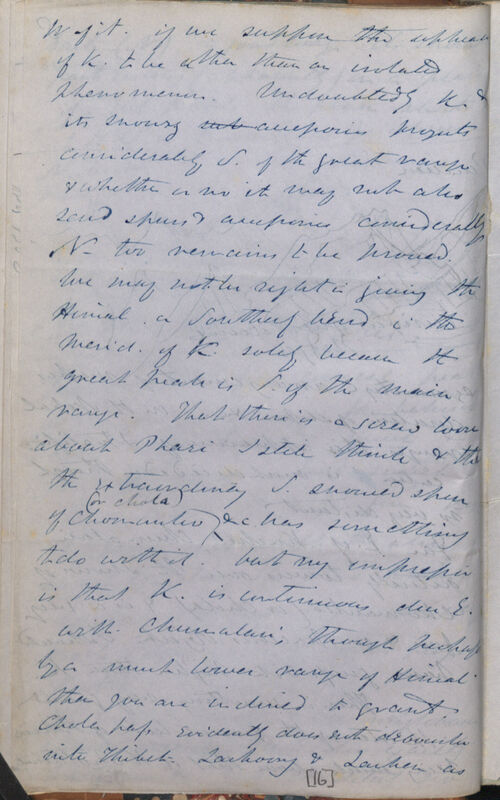 W of it. if we suppose the upheav
of K. to be other than an isolated
phenomenon. Undoubtedly K. &
its snowy sub accessories projects
considerably S. of the great range
& whether or no it may not also
send spurs & accessories considerably
N. too remains to be proved.
We may not be right in giving the
Himal. a Southerly bend in the
merid. of K. solely because the
great peak is S. of the main
range. That there is a screw loose
about Phari I still think & that
the extraordinary S. snowed spur
of Chomanko or Chola &c has something
to do with it. but my impression
is that K. is continuous due E.
with Chumalari, though perhaps
by a much lower range of Himal
than you are inclined to grant.
Chola pass evidently does not debouche
into Thibet. Lachoong & Lachen as
[16]